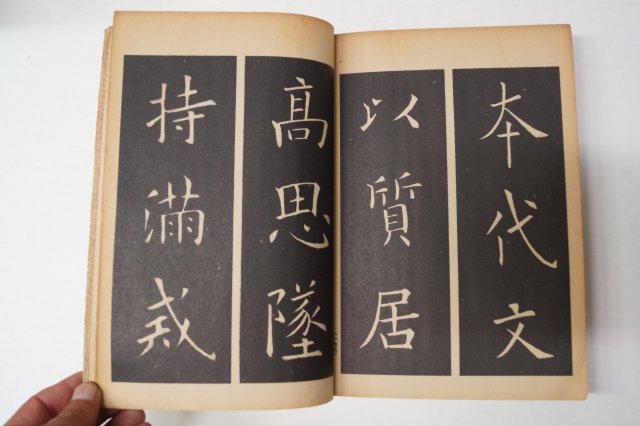 本代文
以質居
髙思墜
持滿戒